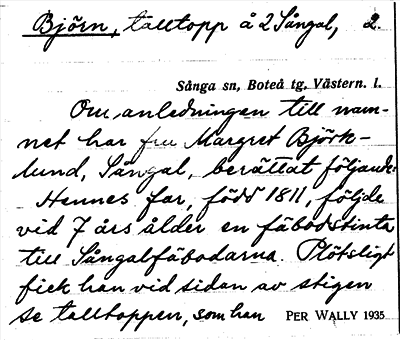 Björn, talltopp å 2 Sångal, 2.
Sånga sn, Boteå tg, Västern. l.
Om anledningen till nam-
net har fru Margret Björk-
lund, Sångal, berättat följande:
Hennes far, född 1811, följde
vid 7 års ålder en fäbodstinta
till Sångalfäbodarna. Plötsligt
fick han vid sidan av stigen
se talltoppen, som han PER WALLY 1935